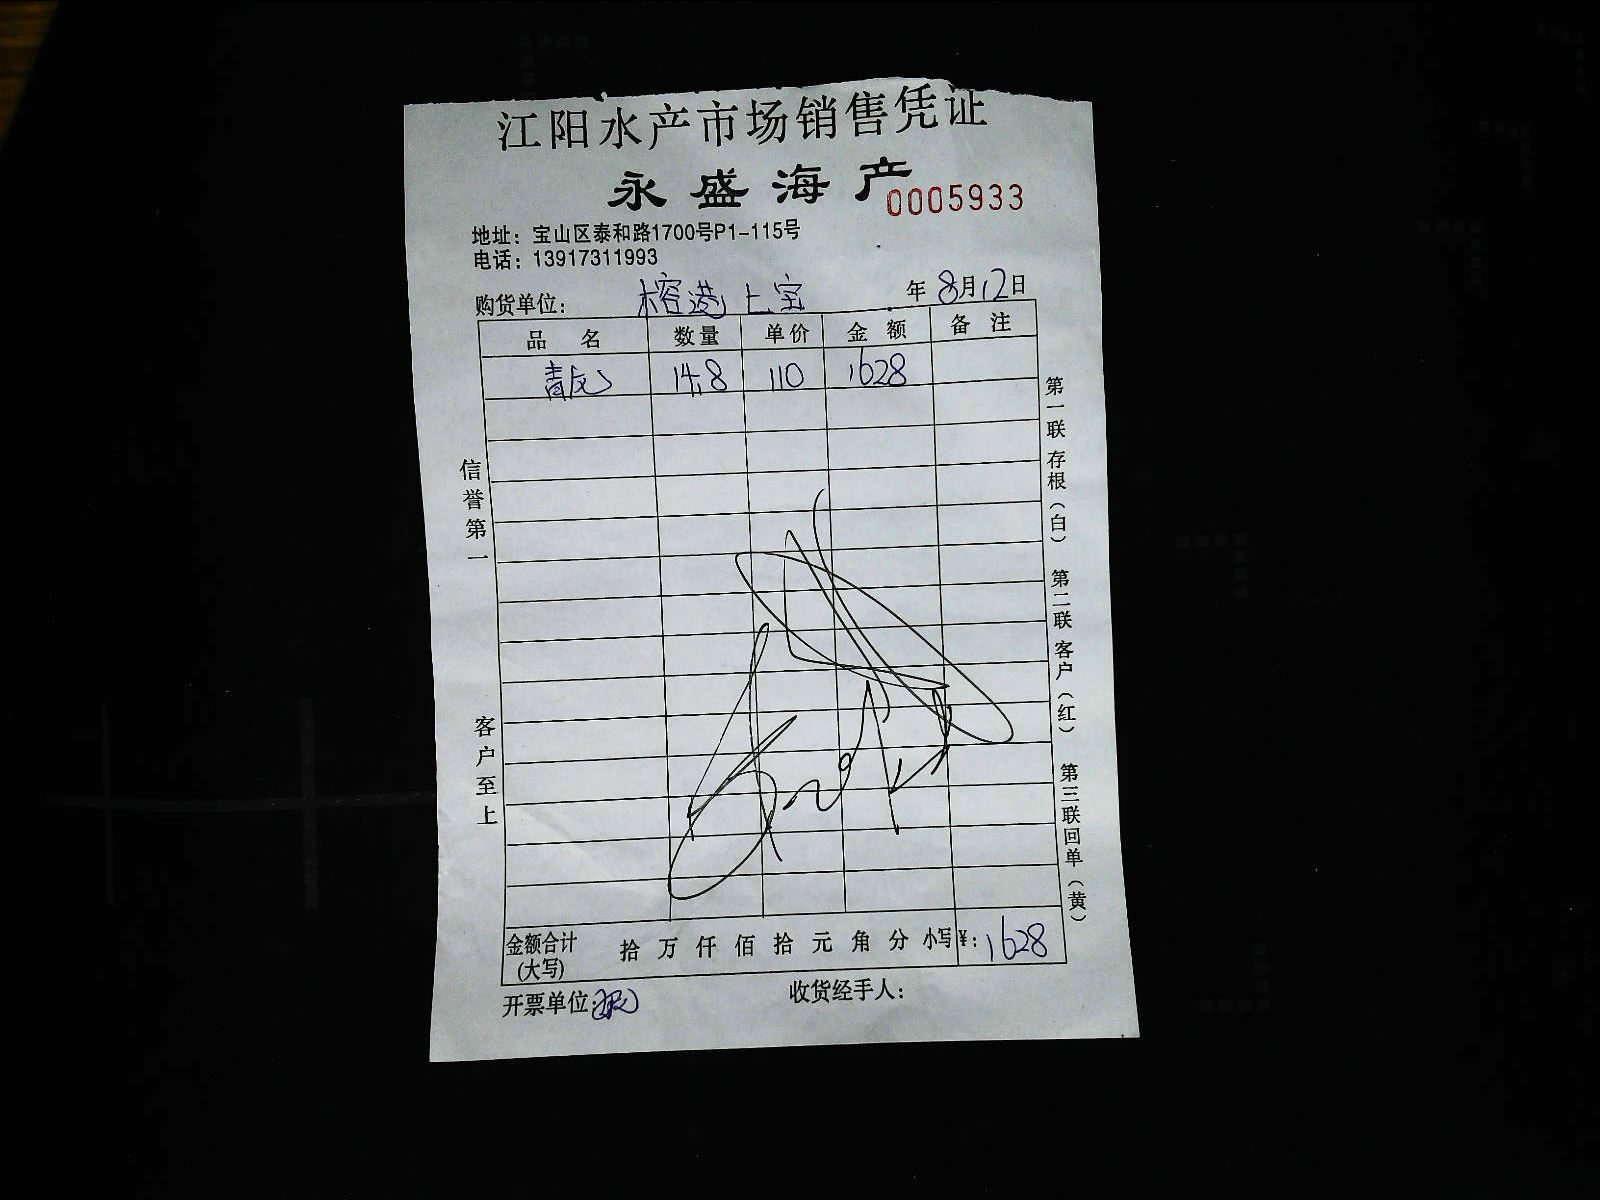 江阳水产市场销售凭证
永盛海产
0005933
地址：宝山区泰和路1700号P1-115号
电话：13917311993
购货单位： 榕港上宝 年8月12日
品名 数量 单价 金额 备注
青龙 14.8 110 1628
信誉第一
客户至上
第一联存根（白） 第二联客户（红） 第三联回单（黄）
金额合计(大写) 拾万仟佰拾元角分 小写 ¥：1628
开票单位： 收货经手人：